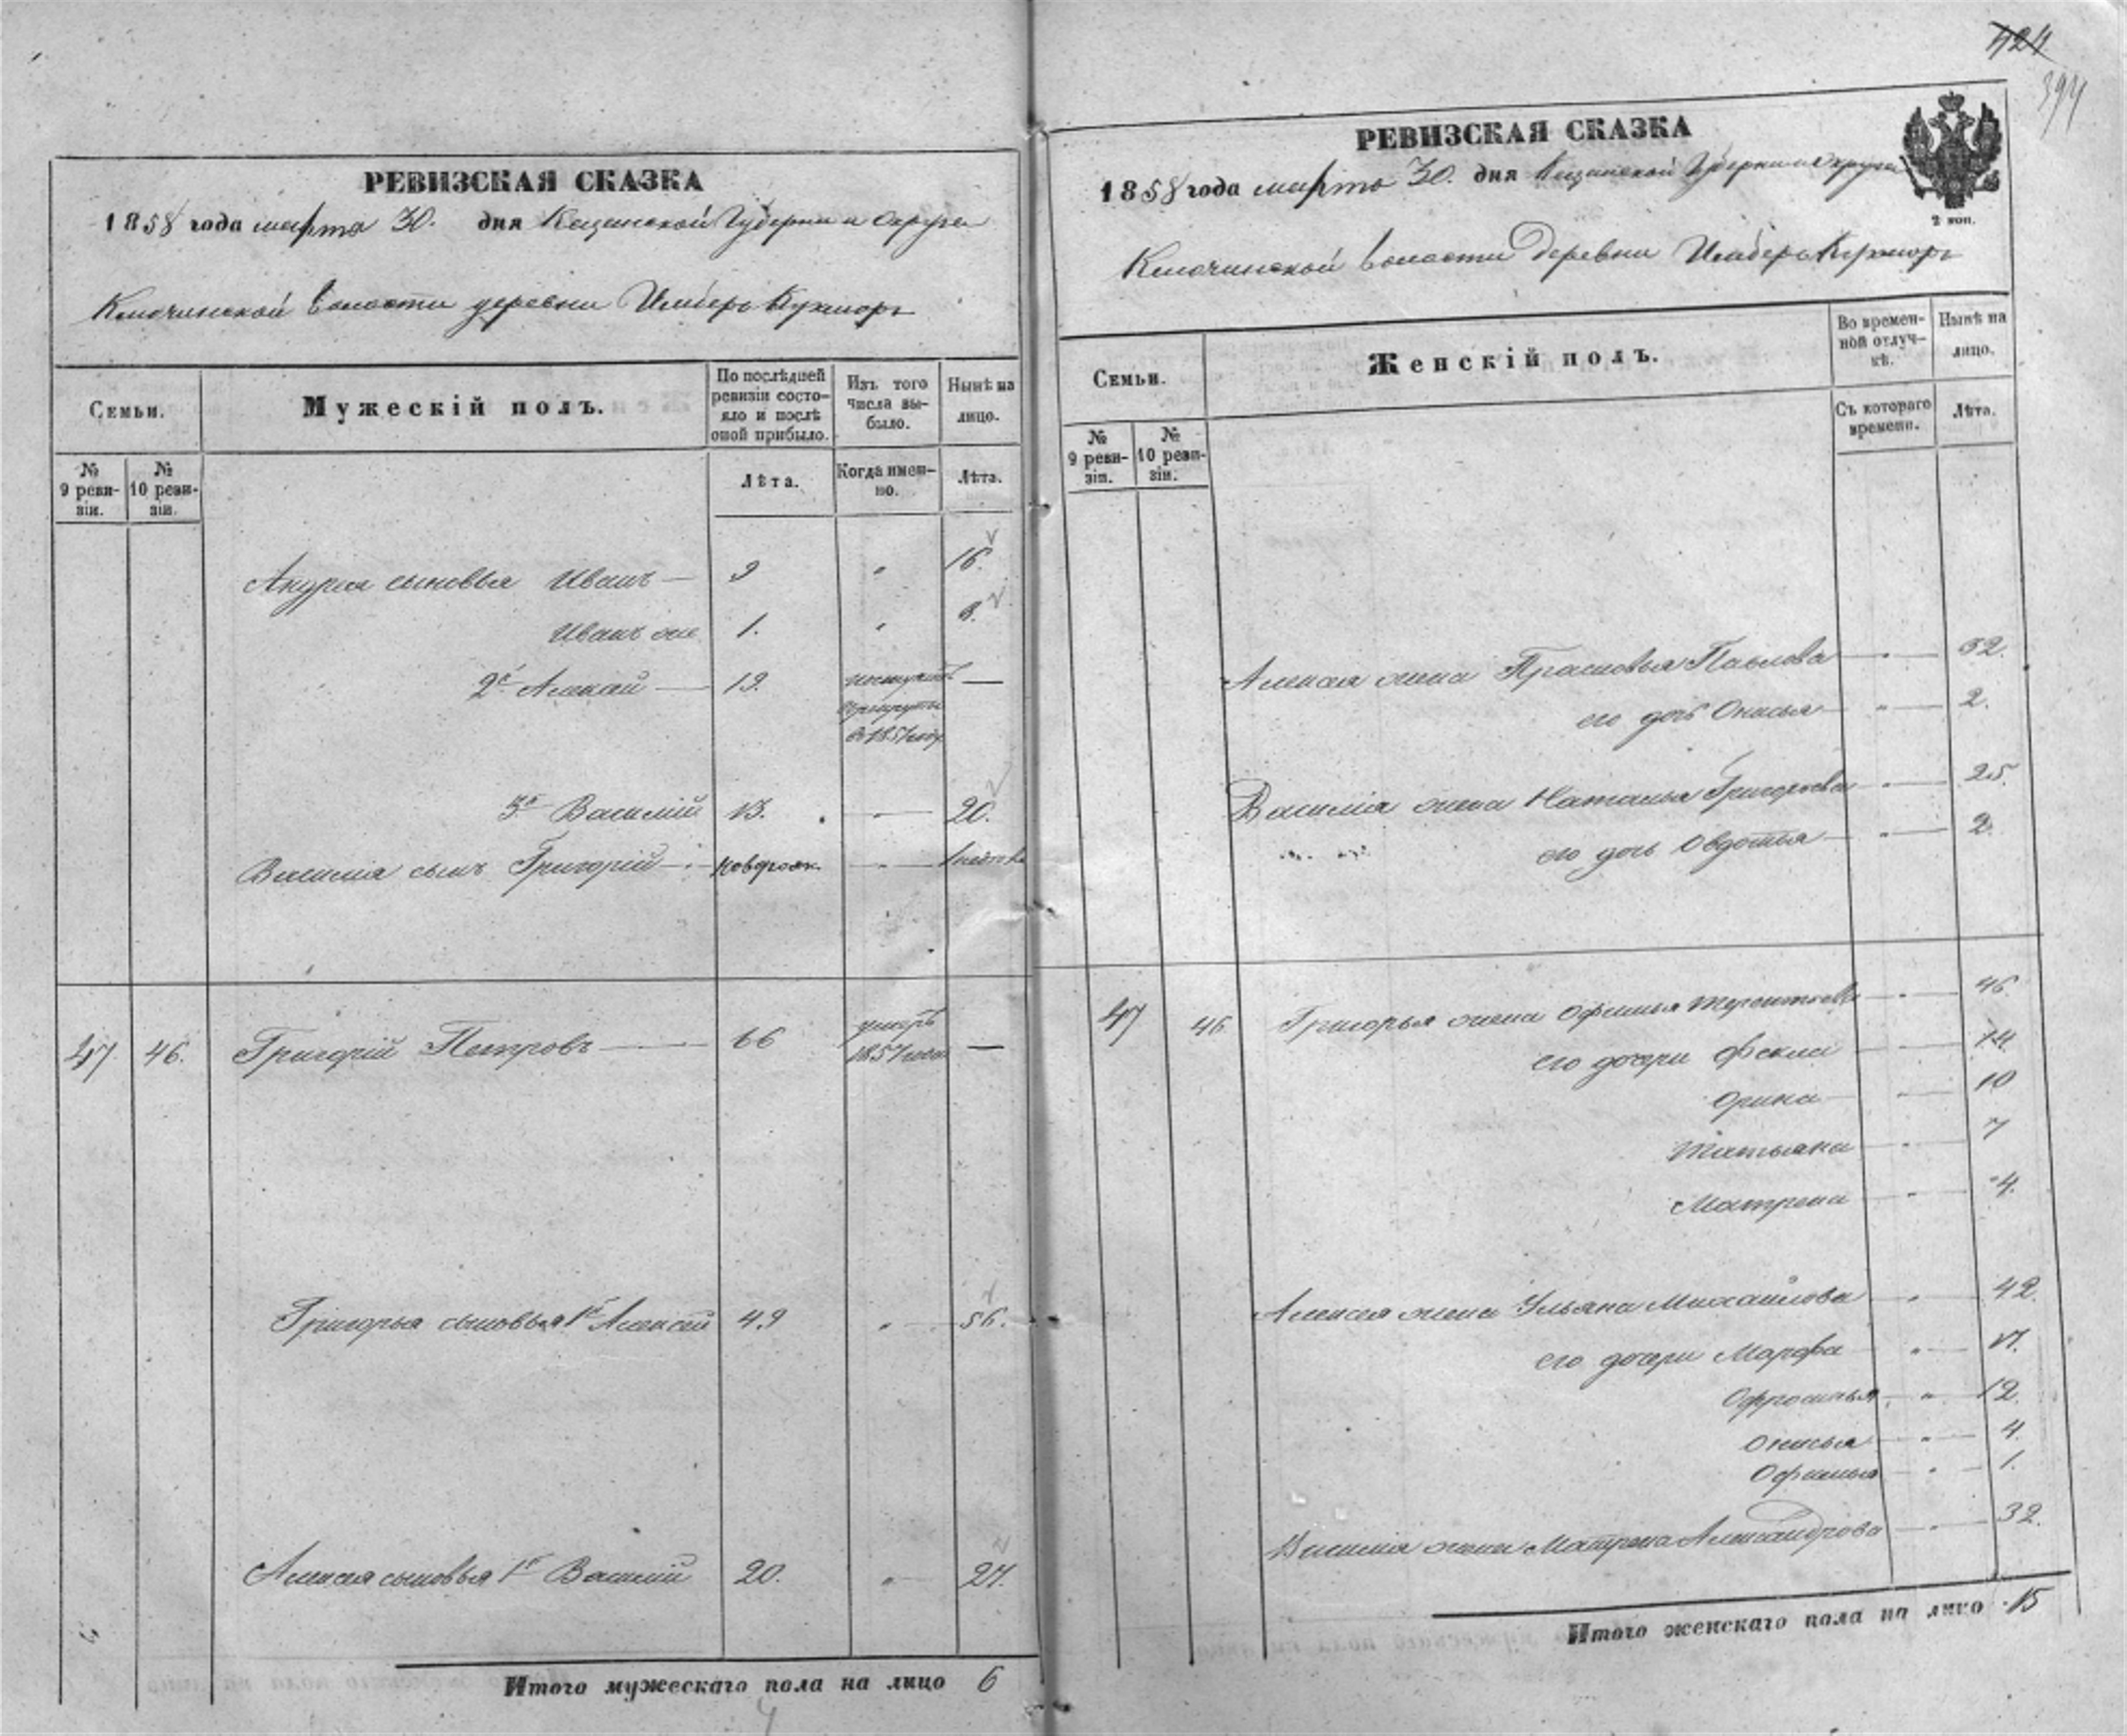 РЕВИЗСКАЯ СКАЗКА
1858 года марта 30. дня Казанской Губернии и Округа
Ключинской волости деревни Кукморъ
Семьи.
Мужескій полъ.
По послѣдней ревизіи состояло и послѣ оной прибыло.
Изъ того числа выбыло.
Нынѣ на лицо.
№ 9 ревизіи.
№ 10 ревизіи.
Лѣта.
Когда именно.
Лѣта.
Андрея сыновья Иванъ 9 " 16.
Иванъ же 1. " 8.
2й Алексей 19. поступилъ —
в рекруты
в 1851 году
3й Василій 13. — 20.
Василія сынъ Григорій новорож. "
47. 46. Григорій Петровъ 66 умеръ —
1857 года
Григорья сыновья 1й Алексей 49 " 56.
Алексея сыновья 1й Василій 20. " 27.
Итого мужескаго пола на лицо 6
424
394
РЕВИЗСКАЯ СКАЗКА
1858 года марта 30. дня Казанской Губернии и Округа
2 коп.
Ключинской волости деревни Кукморъ
Семьи.
Женскій полъ.
Во временной отлучкѣ.
Нынѣ на лицо.
№ 9 ревизіи.
№ 10 ревизіи.
Съ котораго времени.
Лѣта.
Алексея жена Прасковья Павлова " 32.
его дочь Онисья " 2.
Василія жена Наталья Григорьева " 25.
его дочь Овдотья " 2.
47 46. Григорья жена Офимья Терентьева " 46.
его дочери Фекла " 14.
Орина " 10
Татьяна " 7
Матрена " 4.
Алексея жена Ульяна Михайлова " 42.
его дочери Марфа " 17.
Офросинья " 12.
Онисья " 4.
Офимья " 1.
Василія жена Матрена Александрова " 32.
Итого женскаго пола на лицо 15